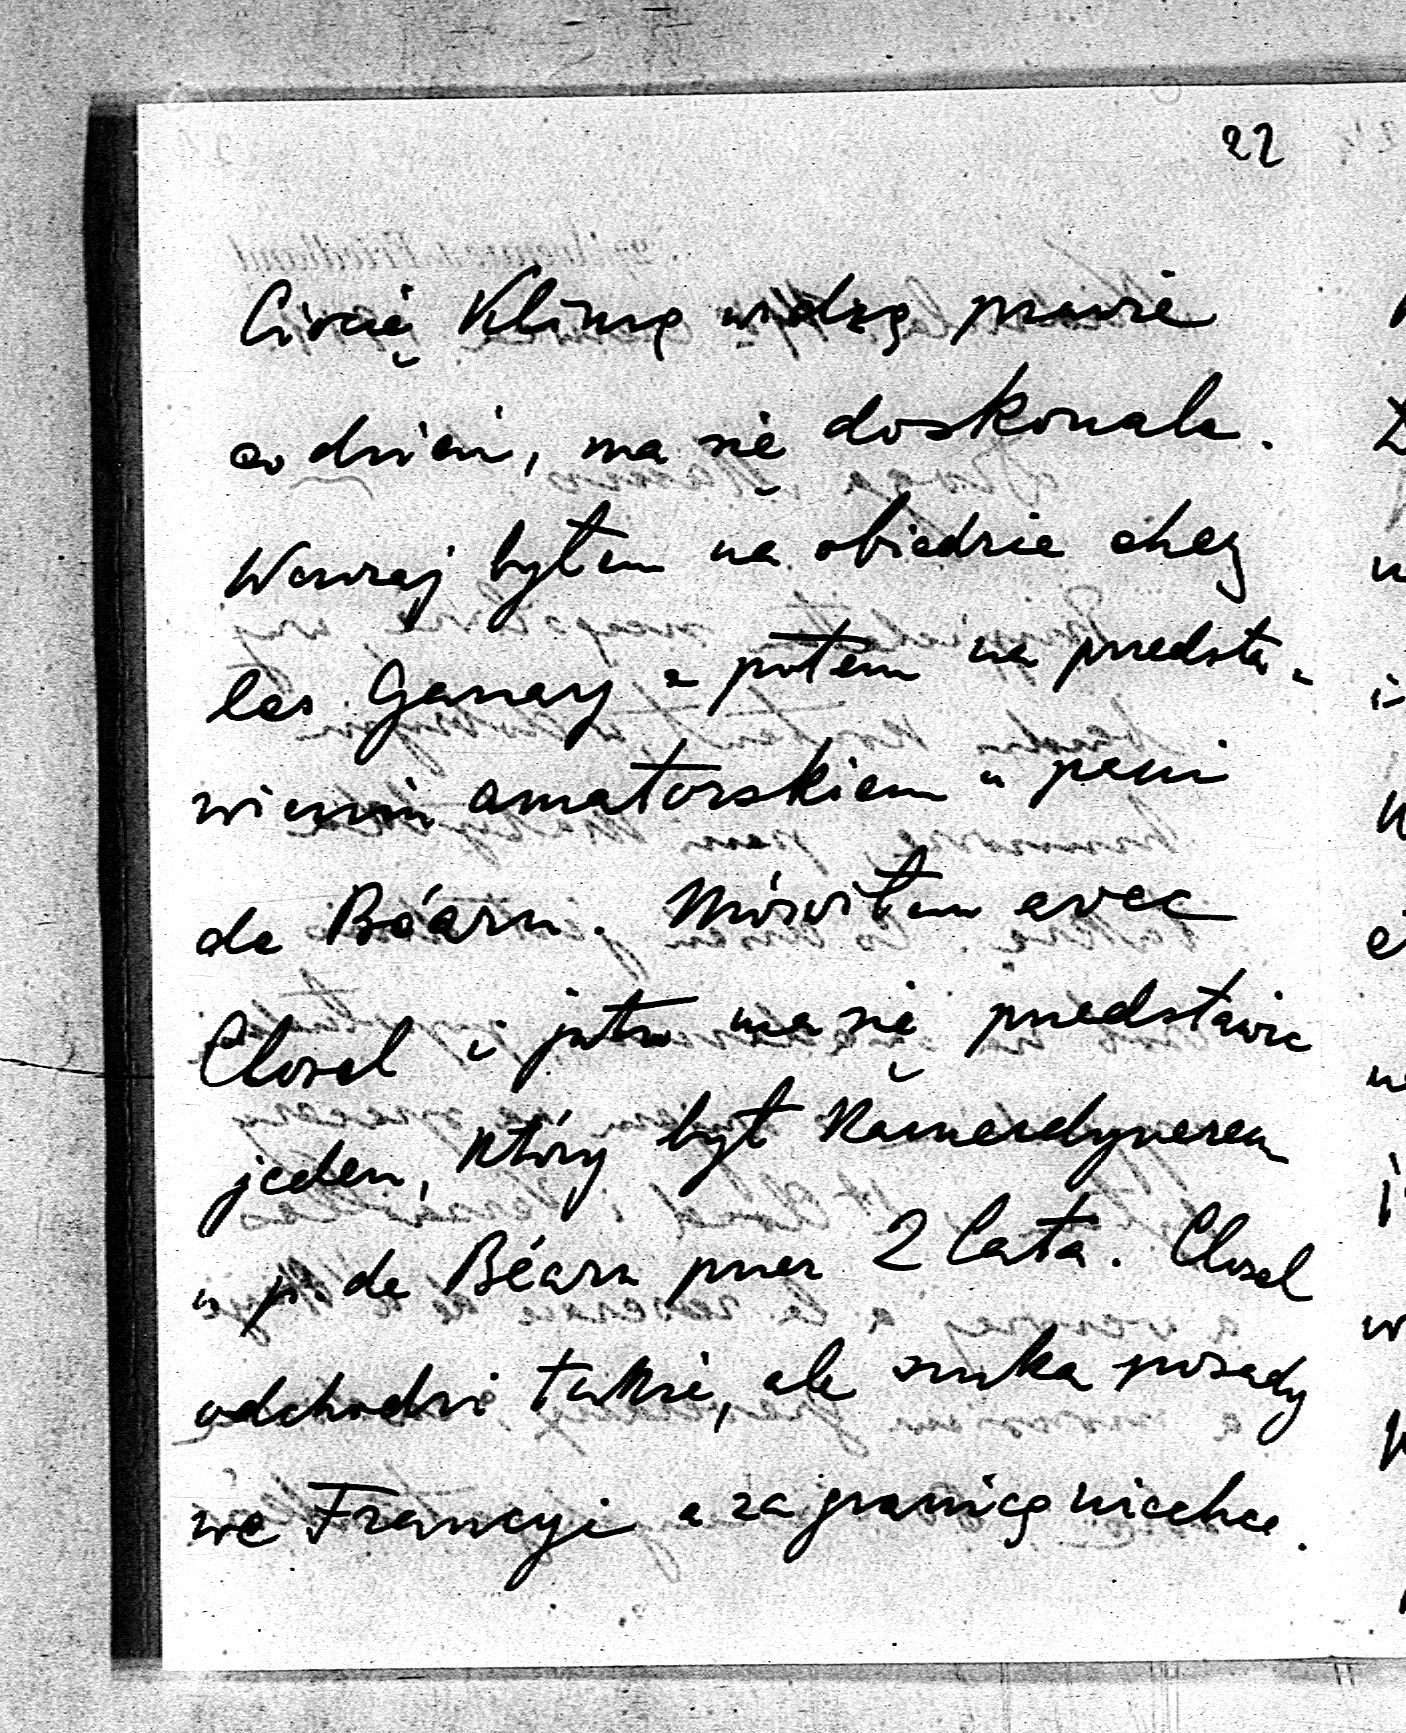 22
Ciocię Klimę widzę prawie
co dzień, ma się doskonale.
Wczoraj byłem na obiedzie chez
les Ganay a potem na przedsta-
wieniu amatorskiem u pani
de Béarn. Mówiłem avec
Closel i jutro ma się przedstawić
jeden, który był Kamerdynerem
u p. de Béarn przez 2 lata. Closel
odchodzi także, ale szuka posady
we Francyi a za granicę niechce.